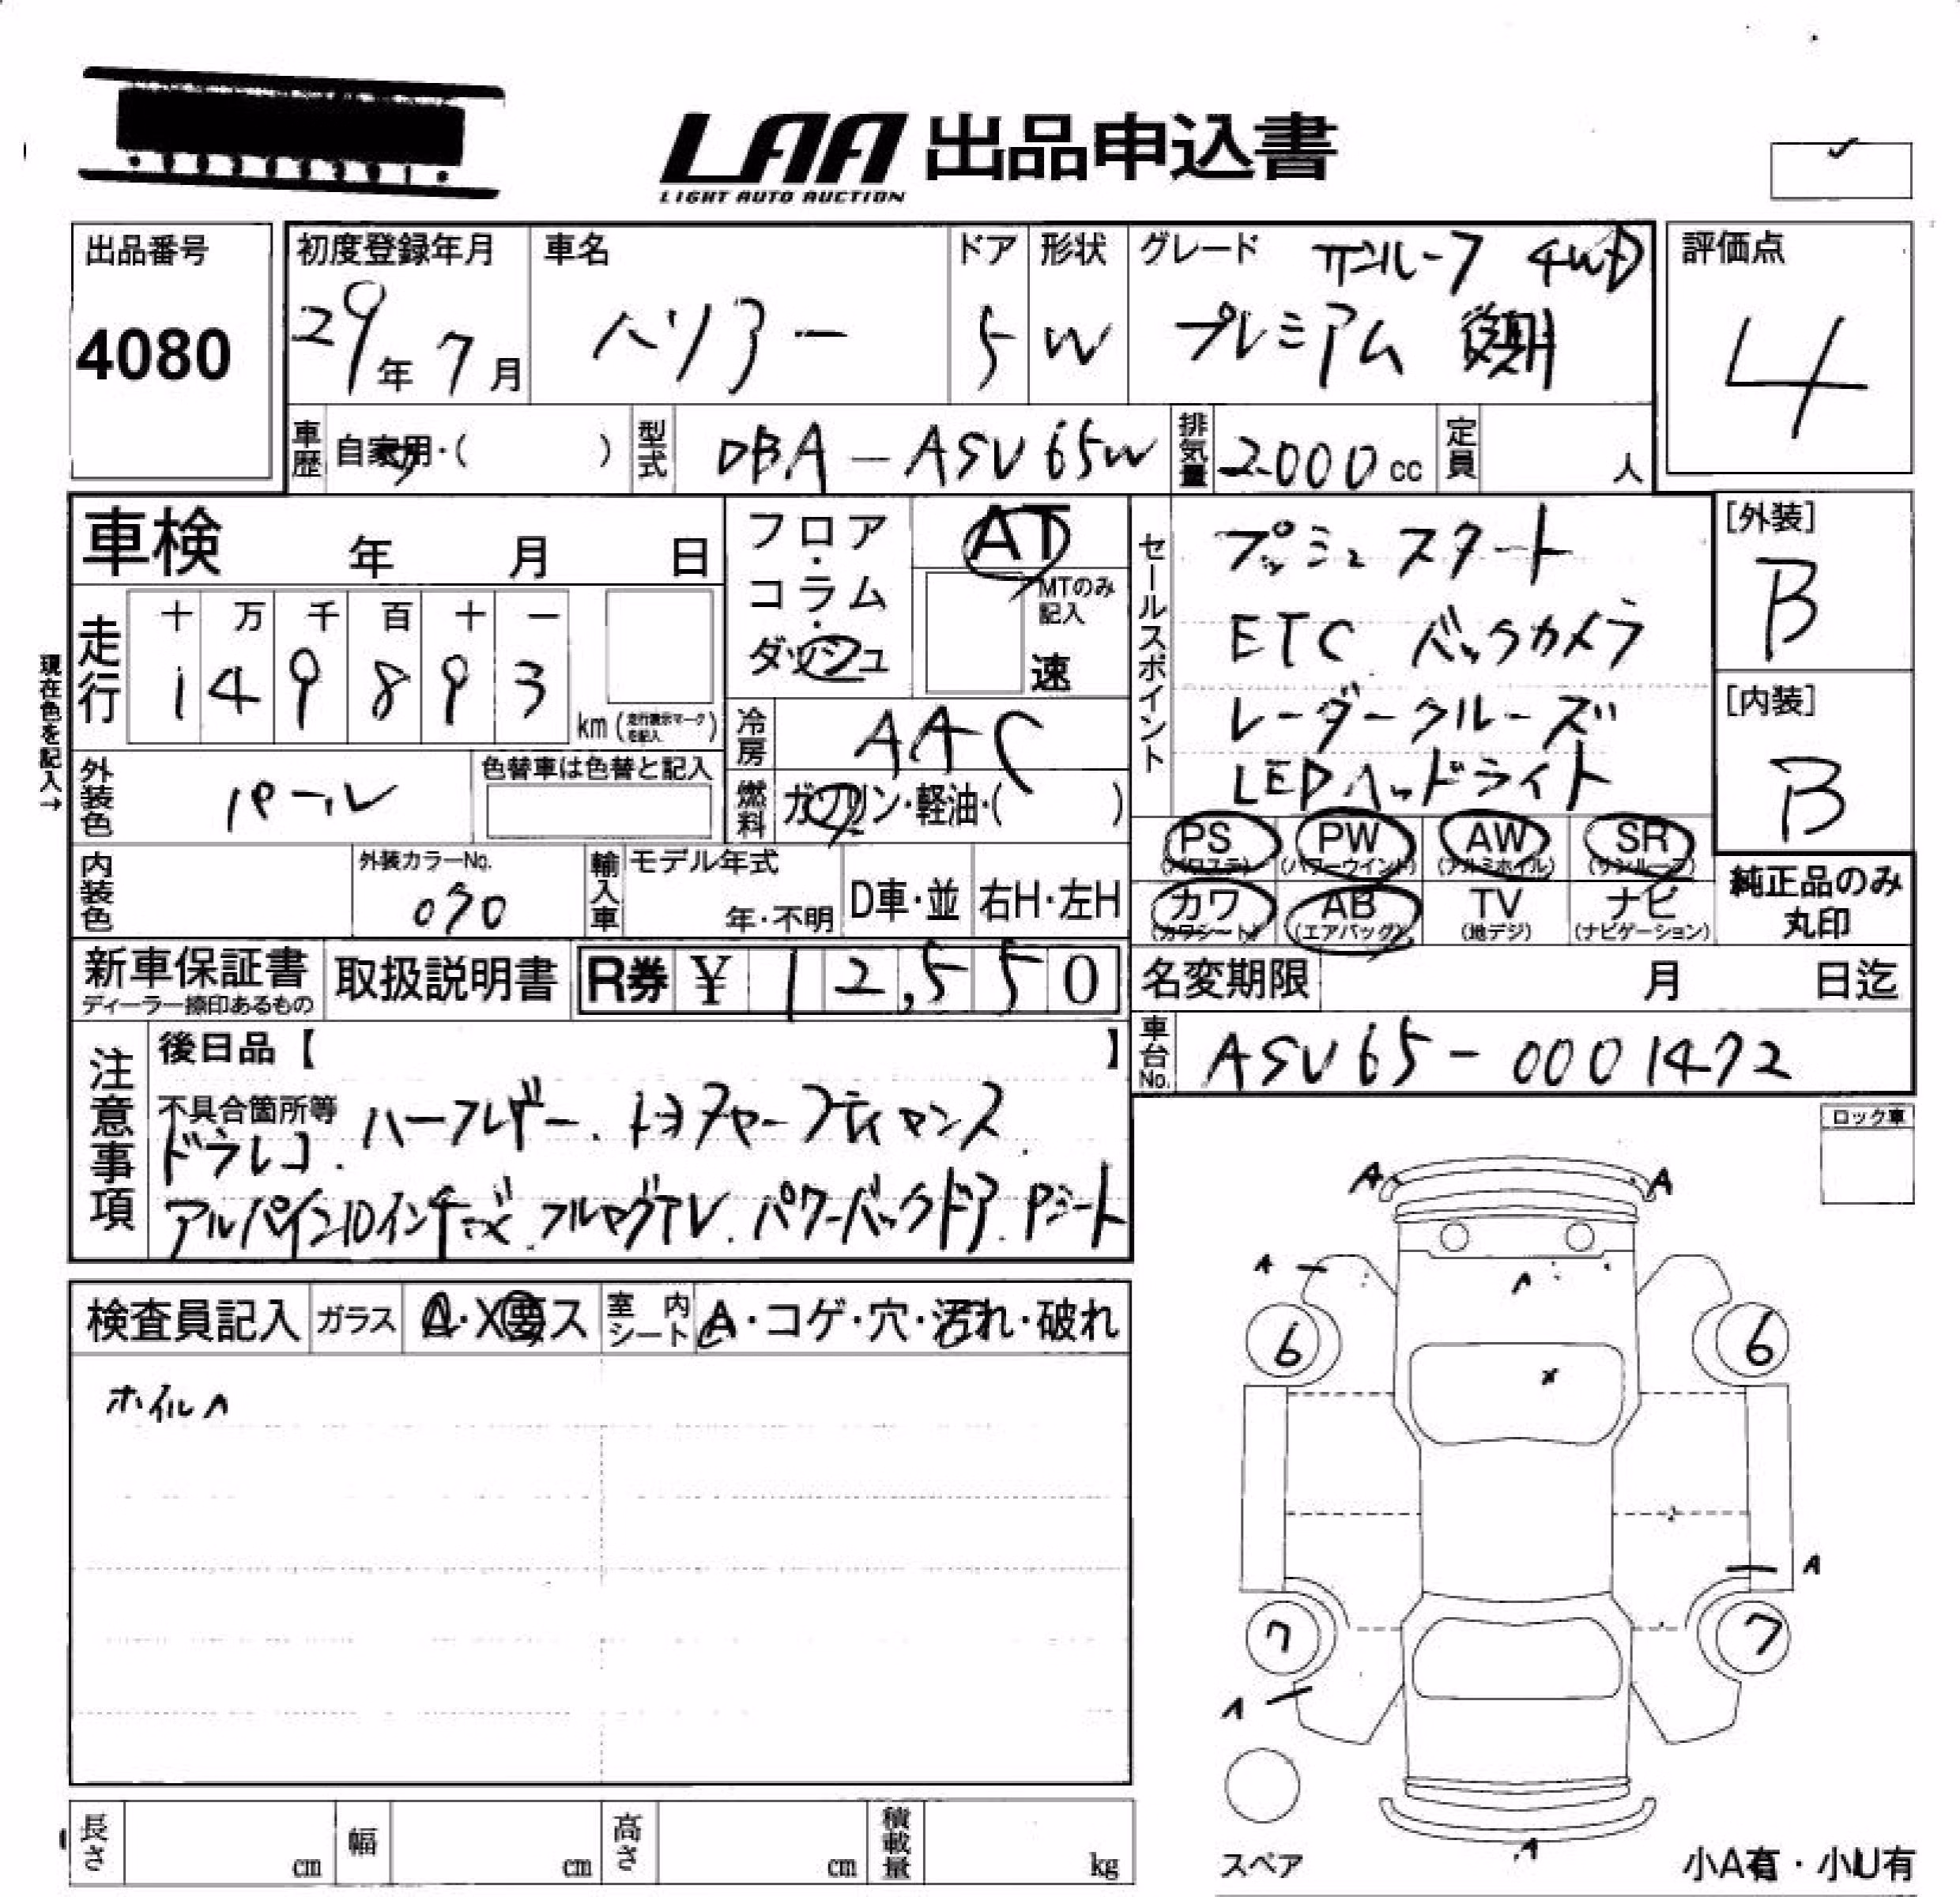 LAA 出品申込書
LIGHT AUTO AUCTION
出品番号
4080
初度登録年月
29年 7月
車名
ハリアー
ドア
5
形状
W
グレード
サンルーフ 4WD
プレミアム 後期
評価点
4
車歴 自家用・( )
型式 DBA-ASU65W
排気量 2000cc
定員 人
車検 年 月 日
フロア・コラム・ダッシュ
AT
MTのみ記入
速
セールスポイント
プッシュスタート
ETC バックカメラ
レーダークルーズ
LEDヘッドライト
[外装]
B
[内装]
B
現在色を記入→
走行
十 万 千 百 十 一
1 4 9 8 9 3
km (走行表示マークを記入)
冷房 AAC
燃料 ガソリン・軽油・( )
外装色 パール
色替車は色替と記入
PS (パワステ) PW (パワーウインド) AW (アルミホイル) SR (サンルーフ)
カワ (カワシート) AB (エアバッグ) TV (地デジ) ナビ (ナビゲーション)
純正品のみ丸印
内装色
外装カラーNo.
070
輸入車
モデル年式
年・不明
D車・並 右H・左H
新車保証書
ディーラー捺印あるもの
取扱説明書
R券 ¥ 12,550
名変期限 月 日迄
車台No. ASU65-0001472
注意事項
後日品【 】
不具合箇所等 ハーフレザー.トヨタセーフティセンス.
ドラレコ.
アルパイン10インチナビ.フルセグTV.パワーバックドア.Pシート
ロック車
検査員記入 ガラス A・X要ス 室内シート A・コゲ・穴・汚れ・破れ
ホイルA
A A
A
A
6 6
X
A
7 7
A
A
スペア
小A有・小U有
長さ cm 幅 cm 高さ cm 積載量 kg